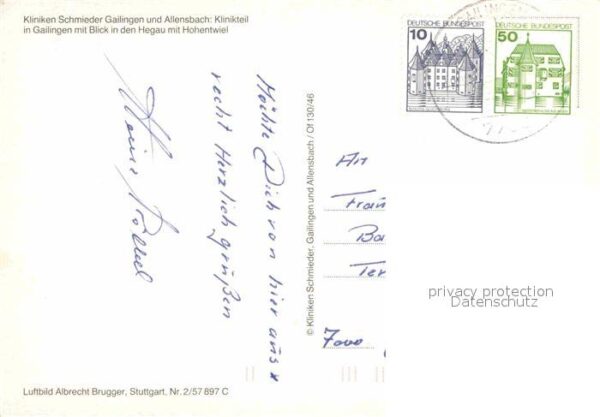 Kliniken Schmieder Gailingen und Allensbach: Klinikteil
in Gailingen mit Blick in den Hegau mit Hohentwiel
DEUTSCHE BUNDESPOST
10
DEUTSCHE BUNDESPOST
50
Möchte Dich von hier aus
recht Herzlich grüßen
© Kliniken Schmieder, Gailingen und Allensbach / Of 130/46
An
Frau
Ba
Ter
7000
privacy protection
Datenschutz
Luftbild Albrecht Brugger, Stuttgart, Nr. 2/57 897 C